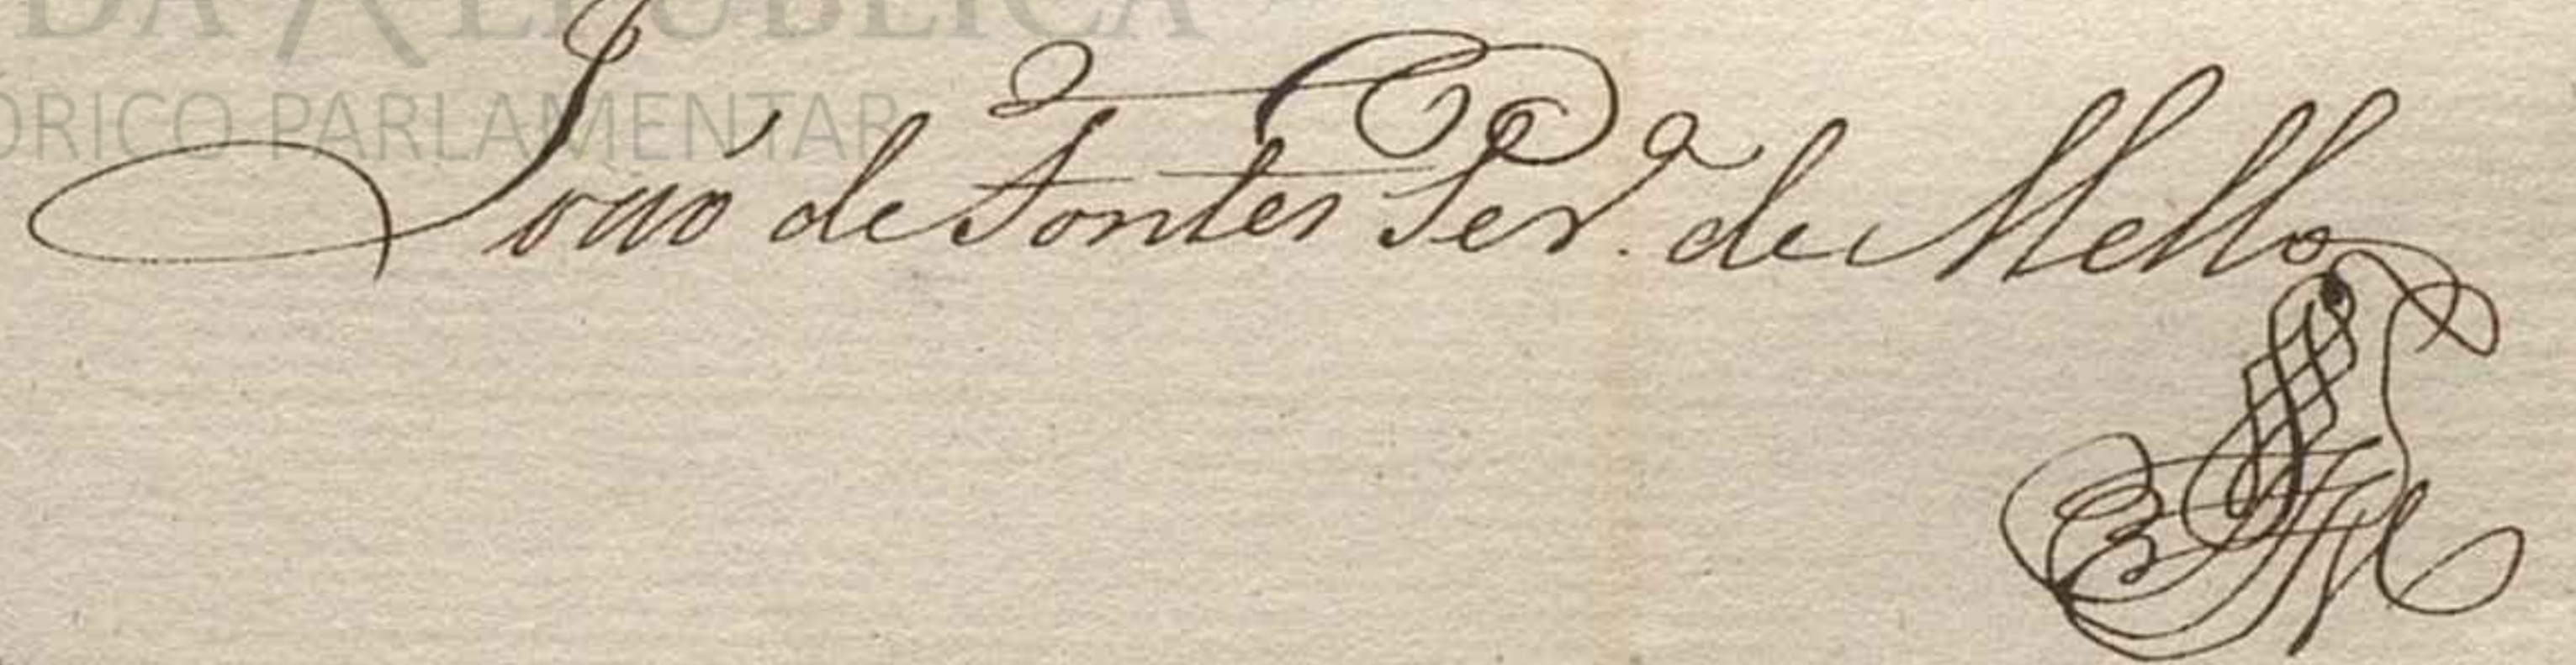 DA REPÚBLICA
ÓRICO PARLAMENTAR
João de Fontes Per.ª de Mello